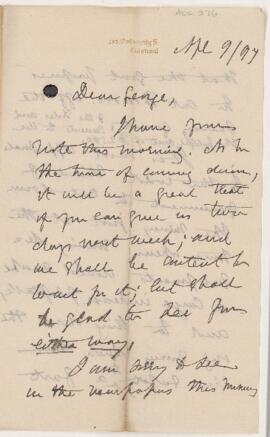 ACC 576
Apl 9/97
Dear George,
I have yours
note this morning. As to
the time of coming down,
it will be a great treat
if you can give us two
days next week; and
we shall be content to
wait for it; but shall
be glad to see you
either way.
I am sorry to see
in the newspapers this morning